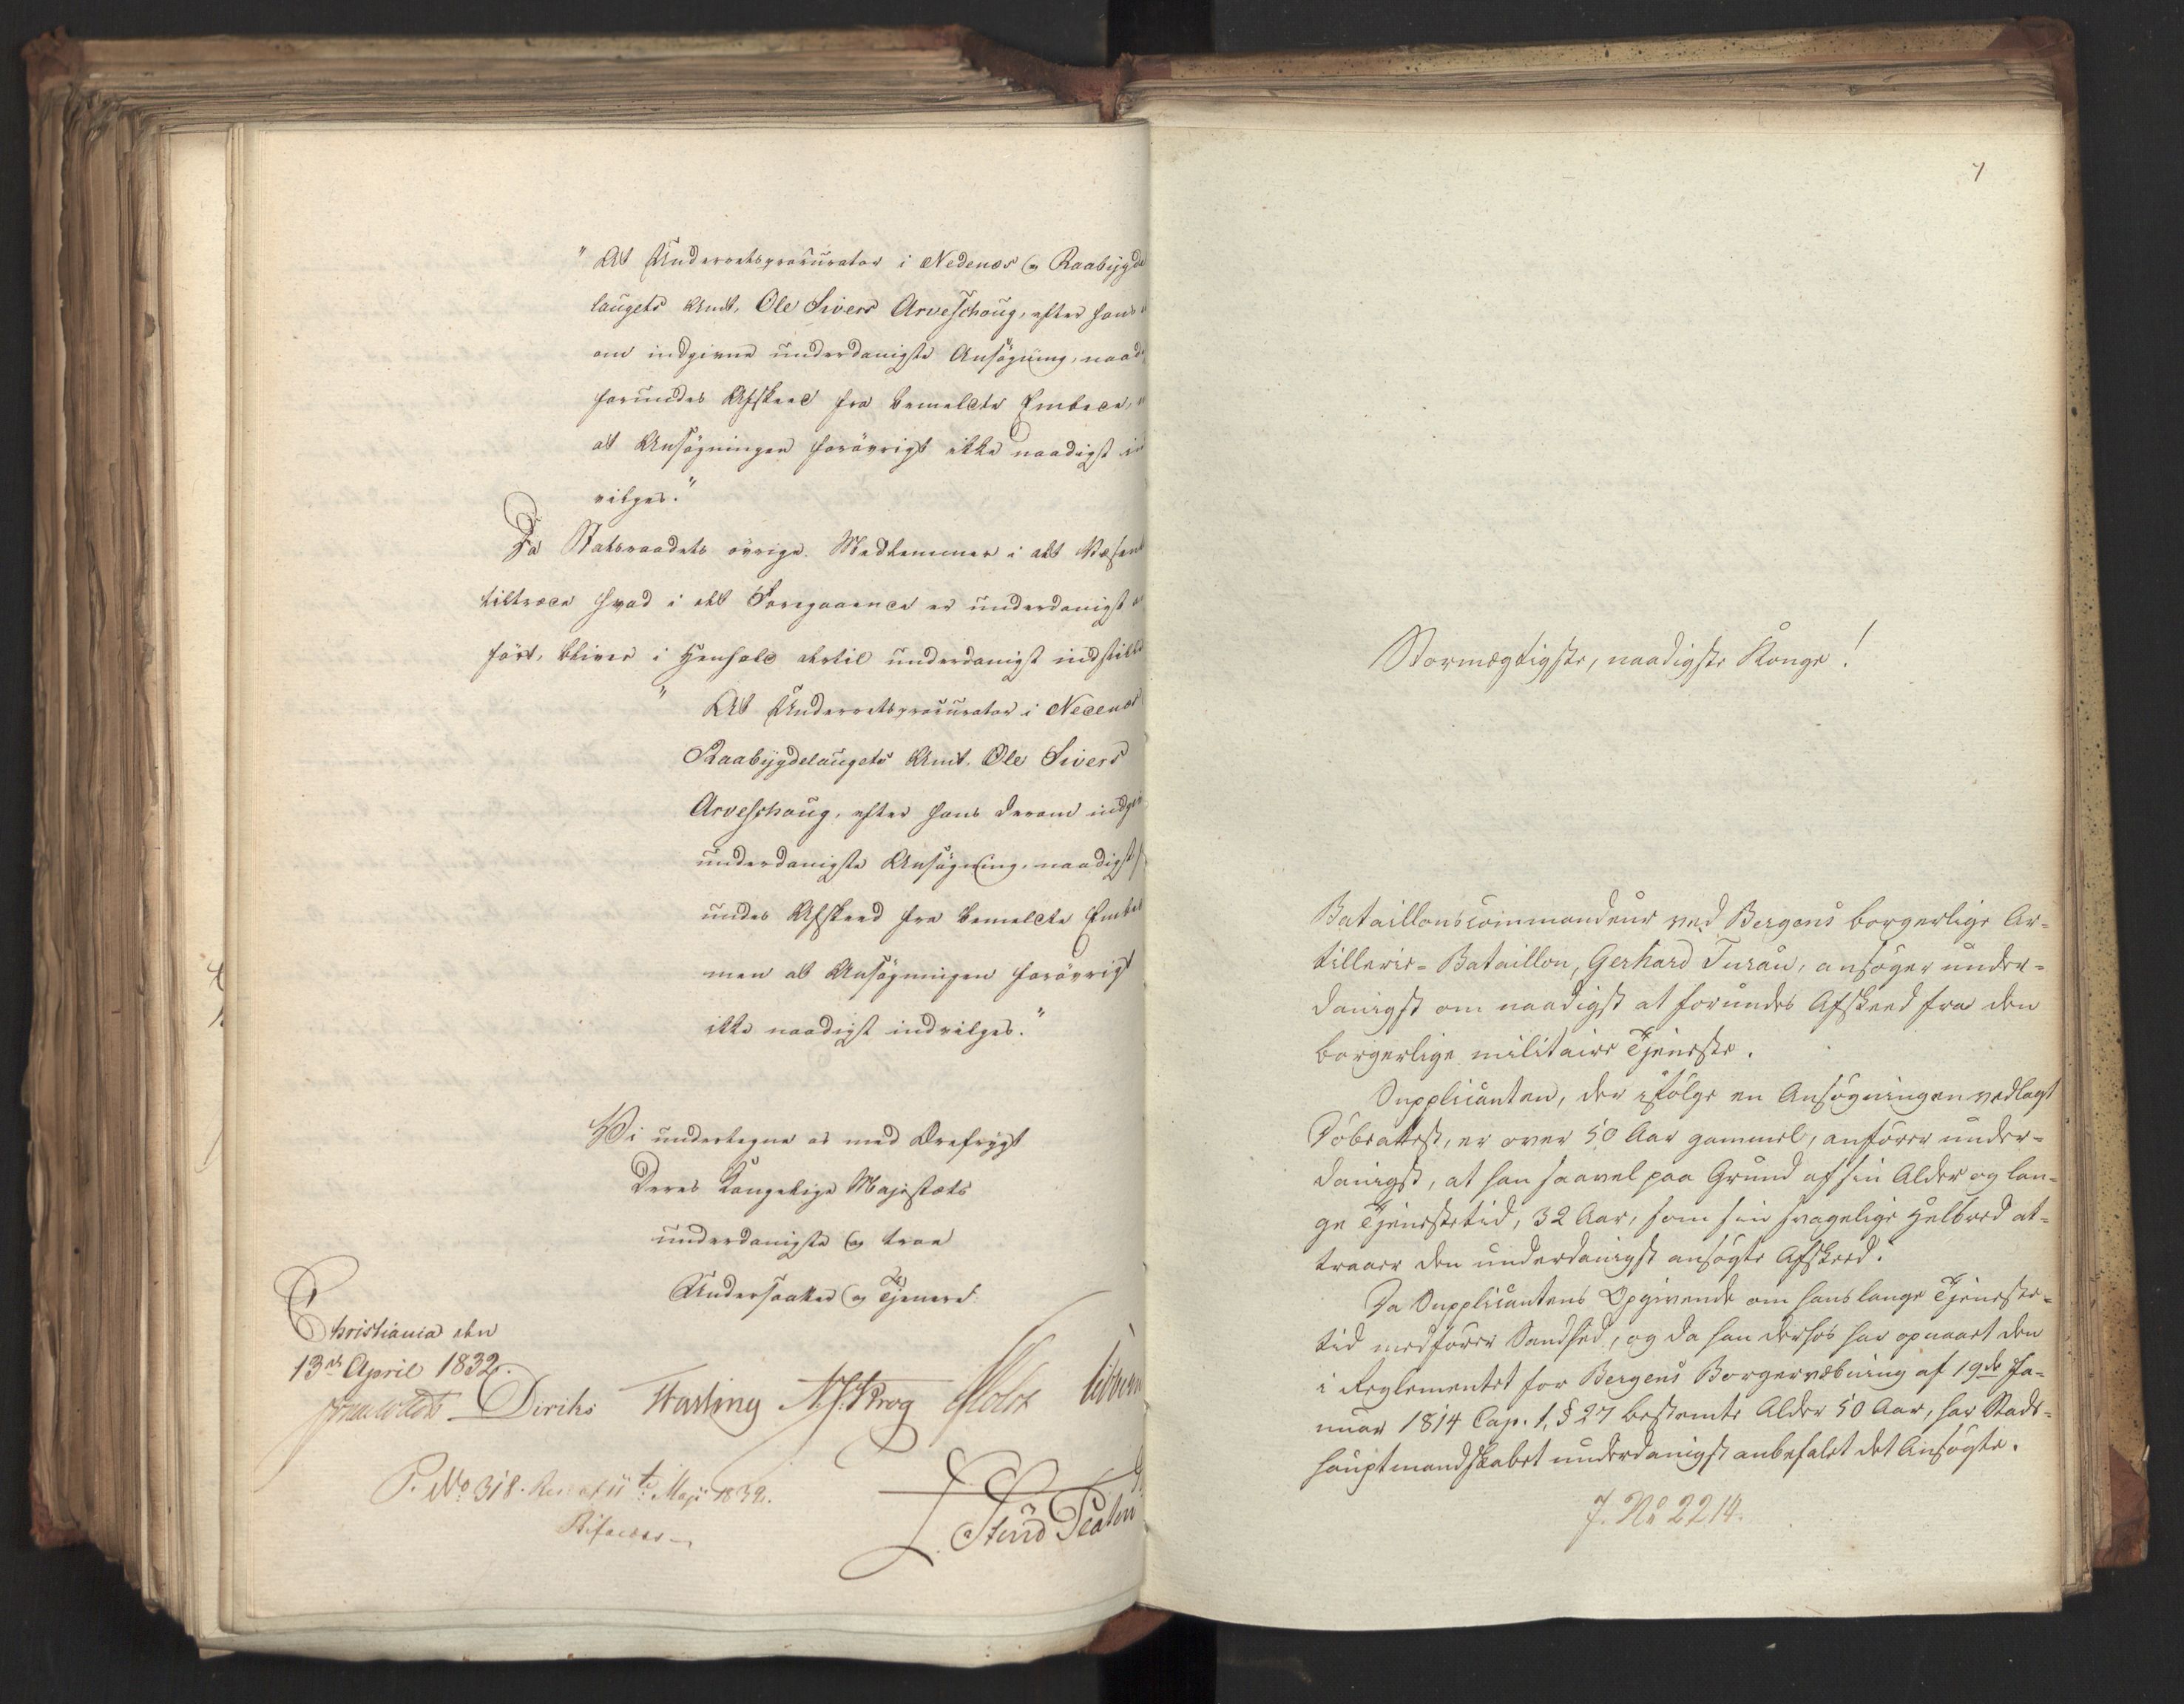 "At Underretsprocurator i Nedenæs og Raabygde
laugets Amt, Ole Sivers Arveschoug, efter hans
om indgivne underdanigste Ansøgning, naad
forundes Afskeed fra bemeldte Embede,
at Ansøgningen forøvrigt ikke naadigst in
vilges."
Da Statsraadets øvrige Medlemmer i alt Væsent
tiltræde hvad i det Foregaaende er underdanigst
ført, bliver i Henhold dertil underdanigst indstillet
"At Underretsprocurator i Nedenæs
Raabygdelaugets Amt, Ole Sivers
Arveschoug, efter hans derom indgiv
underdanigste Ansøgning, naadigst
undes Afskeed fra bemeldte Embed
men at Ansøgningen forøvrigt
ikke naadigst indvilges."
Vi undertegne os med Ærefrygt
Deres Kongelige Majestæts
underdanigste og troe
Undersaatter og Tjenere
Christiania den
13de April 1832.
Diriks Fasting N. J. Krog Holst
P. No 318. Res. af 11te Maji 1832.
Bifaldes
7
Stormægtigste, naadigste Konge!
Bataillonscommandeur ved Bergens borgerlige Ar-
tillerie-Bataillon, Gerhard Turau, ansøger under-
danigst om naadigst at forundes Afskeed fra den
borgerlige militaire Tjeneste.
Supplicanten, der ifølge en Ansøgningen vedlagt
Døbeattest, er over 50 Aar gammel, anfører under-
danigst, at han saavel paa Grund af sin Alder og lan-
ge Tjenestetid, 32 Aar, som sin svagelige Helbred at-
traaer den underdanigst ansøgte Afskeed.
Da Supplicantens Opgivende om hans lange Tjeneste-
tid medfører Sandhed, og da han derhos har opnaaet den
i Reglementet for Bergens Borgervæbning af 19de Ja-
nuar 1814 Cap. 1, § 27 bestemte Alder 50 Aar, har Stads-
hauptmandskabet underdanigst anbefalet det Ansøgte.
J. No 2214.